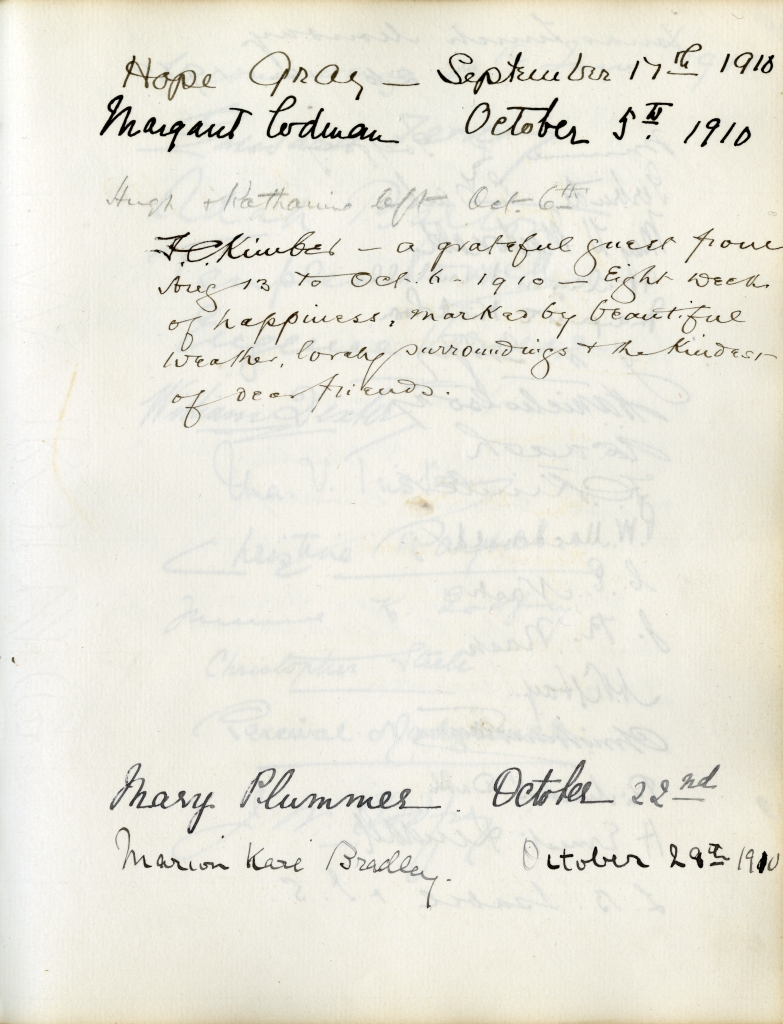 Hope Gray — September 17th 1910
Margaret Codman October 5th 1910
Hugh + Katharine left Oct 6th
F. C. Kimber — a grateful guest from
Aug 13 to Oct. 6 - 1910 — Eight weeks
of happiness, marked by beautiful
weather, lovely surroundings + the kindest
of dear friends.
Mary Plummer. October 22nd
Marion Kare Bradley. October 29th 1910